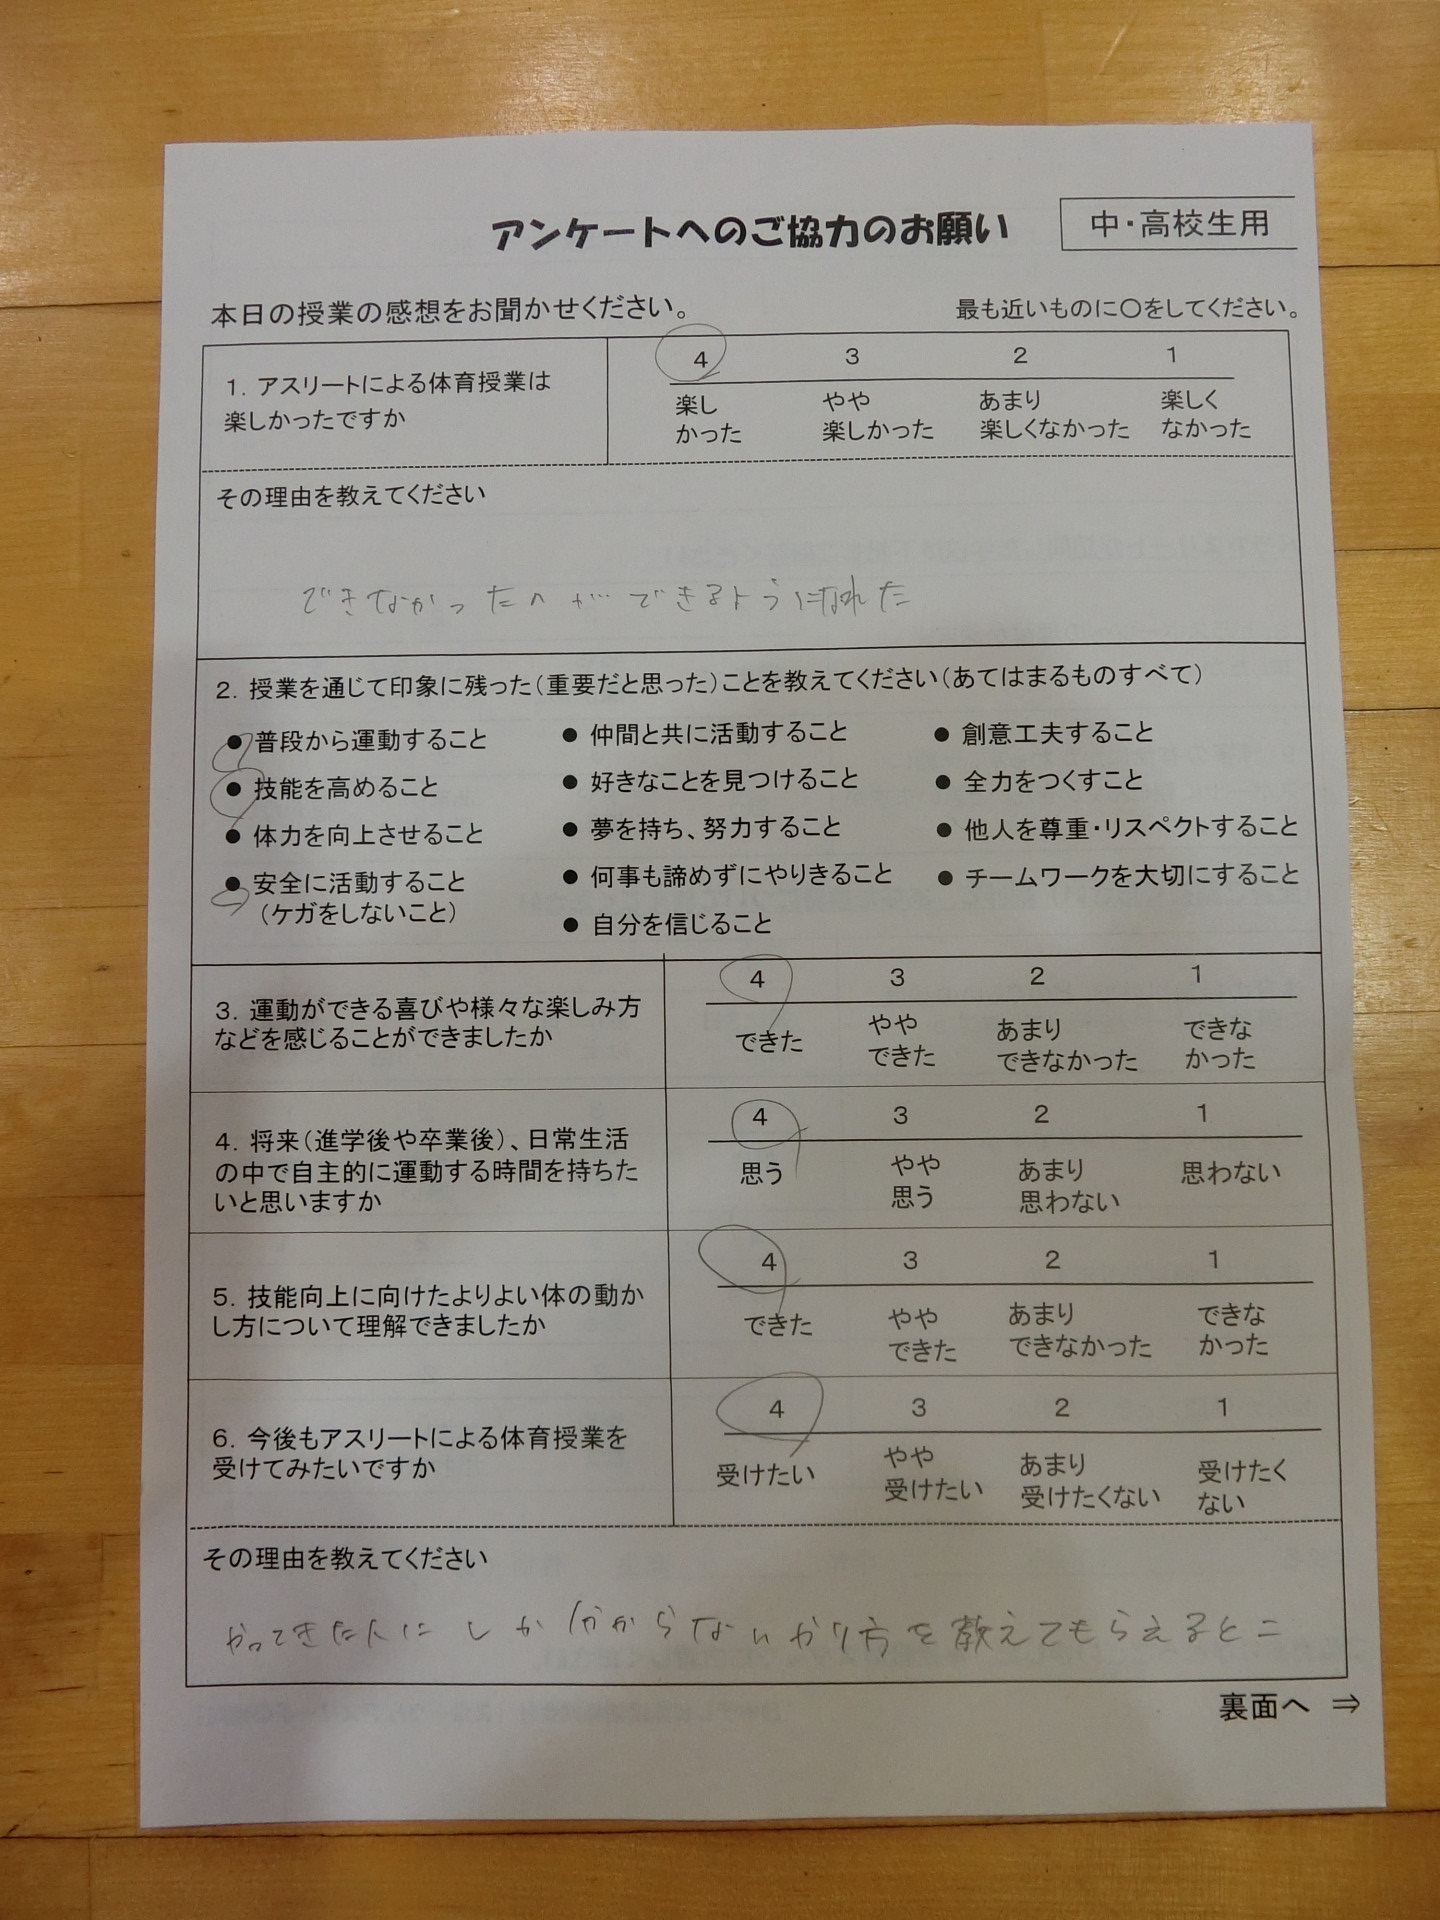 アンケートへのご協力のお願い
中・高校生用
本日の授業の感想をお聞かせください。
最も近いものに〇をしてください。
1. アスリートによる体育授業は
楽しかったですか
4 3 2 1
楽し やや あまり 楽しく
かった 楽しかった 楽しくなかった なかった
その理由を教えてください
できなかったのができるようになれた
2. 授業を通じて印象に残った(重要だと思った)ことを教えてください(あてはまるものすべて)
● 普段から運動すること ● 仲間と共に活動すること ● 創意工夫すること
● 技能を高めること ● 好きなことを見つけること ● 全力をつくすこと
● 体力を向上させること ● 夢を持ち、努力すること ● 他人を尊重・リスペクトすること
● 安全に活動すること ● 何事も諦めずにやりきること ● チームワークを大切にすること
(ケガをしないこと)
● 自分を信じること
3. 運動ができる喜びや様々な楽しみ方
などを感じることができましたか
4 3 2 1
できた やや あまり できな
できた できなかった かった
4. 将来(進学後や卒業後)、日常生活
の中で自主的に運動する時間を持ちた
いと思いますか
4 3 2 1
思う やや あまり 思わない
思う 思わない
5. 技能向上に向けたよりよい体の動か
し方について理解できましたか
4 3 2 1
できた やや あまり できな
できた できなかった かった
6. 今後もアスリートによる体育授業を
受けてみたいですか
4 3 2 1
受けたい やや あまり 受けたく
受けたい 受けたくない ない
その理由を教えてください
やってきた人にしか分からないやり方を教えてもらえるとこ
裏面へ ⇒